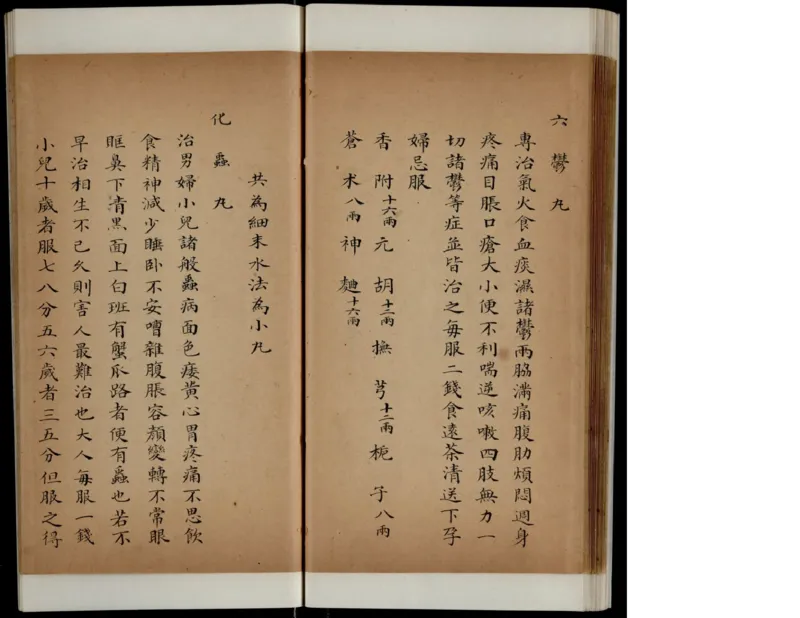 六鬱丸
專治氣火食血痰濕諸鬱兩脇滿痛腹肋煩悶週身
疼痛目脹口瘡大小便不利喘逆咳嗽四肢無力一
切諸鬱等症並皆治之每服二錢食遠茶清送下孕
婦忌服
香附十六兩元胡十二兩撫芎十二兩梔子八兩
蒼朮八兩神麯十六兩
共為細末水法為小丸
化蟲丸
治男婦小兒諸般蟲病面色痿黃心胃疼痛不思飲
食精神減少睡卧不安嘈雜腹脹容顏變轉不常眼
眶鼻下青黑面上白班有蟹爪路者便有蟲也若不
早治相生不已久則害人最難治也大人每服一錢
小兒十歲者服七八分五六歲者三五分但服之得